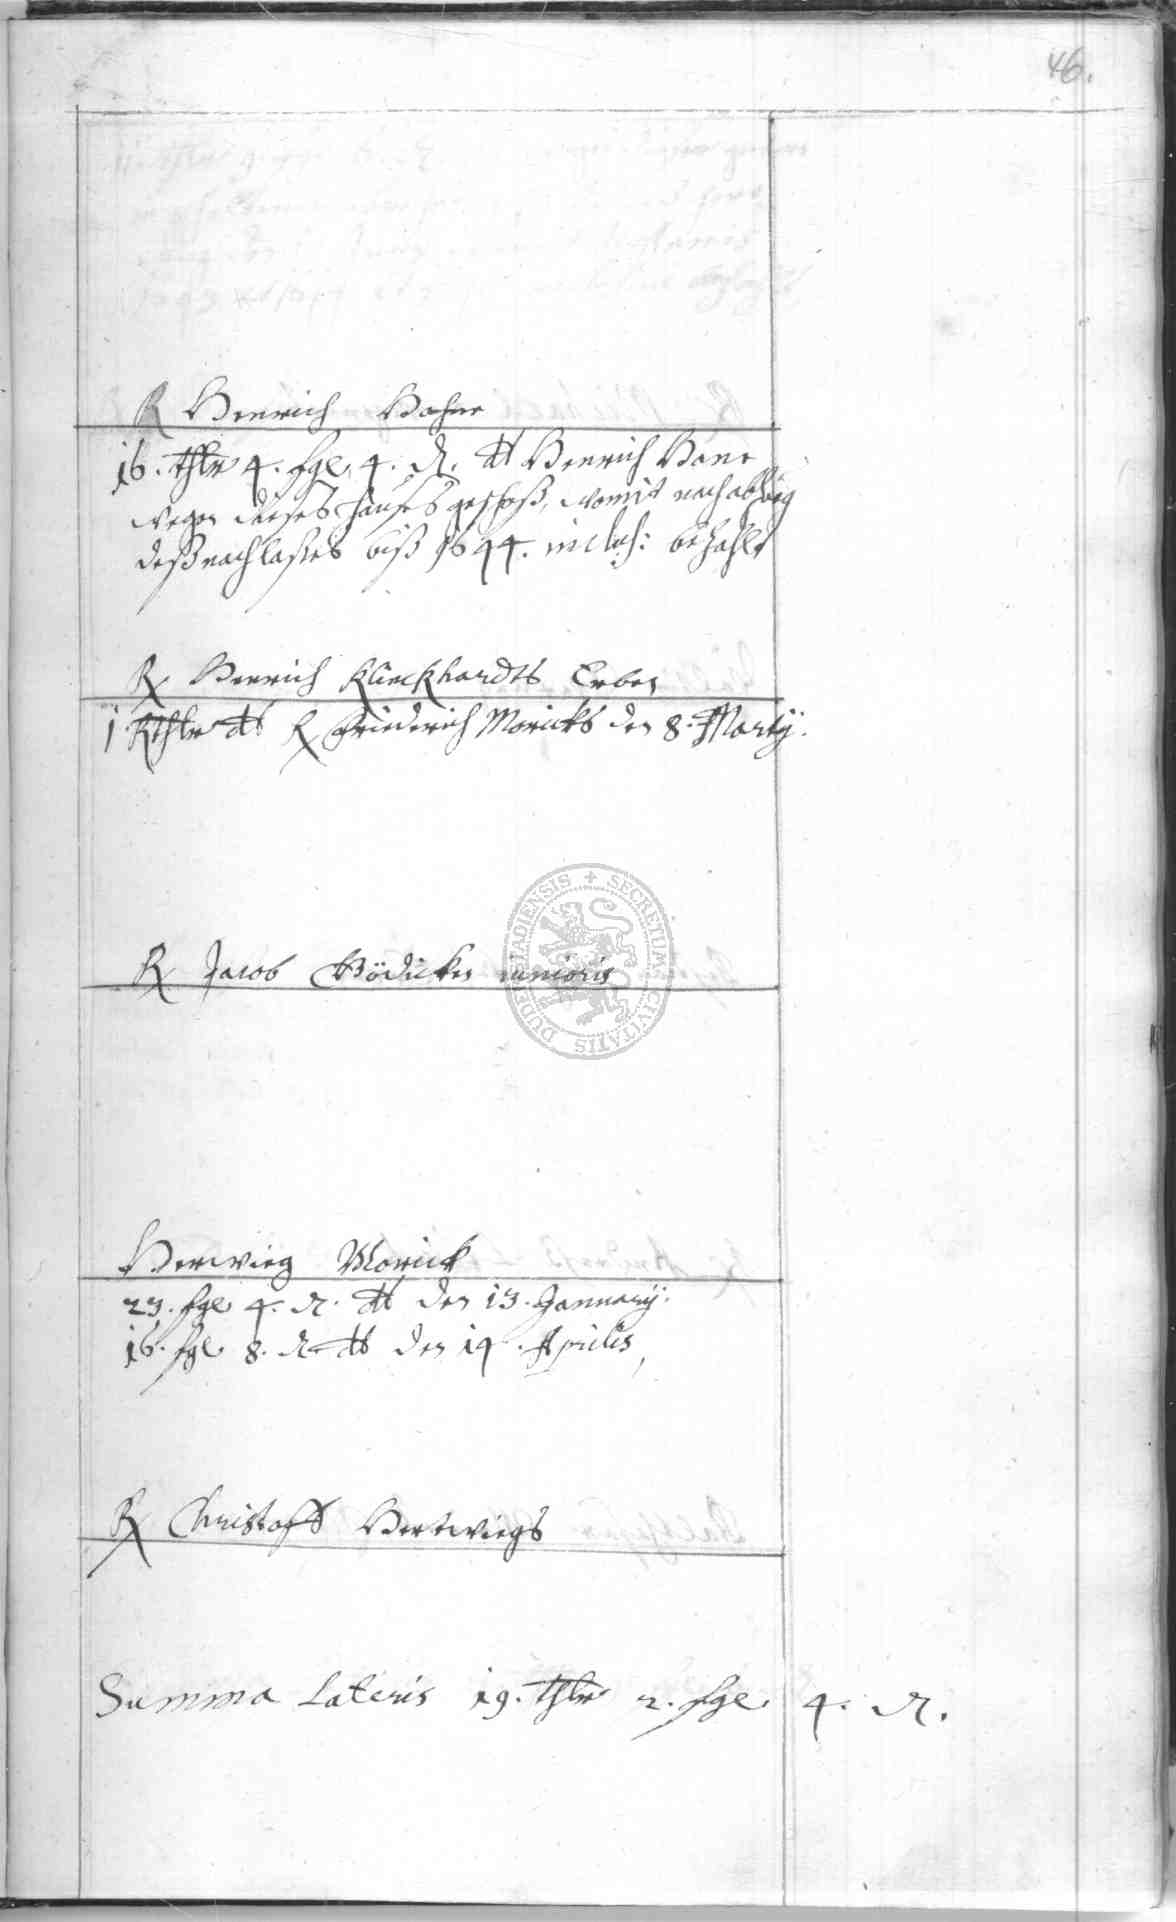 46.
R Henrich Hahne
16. thlr 4. sgl. 4. d. dt Henrich Hane
wegen dieses hauses geschoß, womit nach abzug
deß nachlaßes biß 1644. inclus: bezahlt
R Henrich Klinckhardts Erben
1 Rthlr dt R Friederich Moricks den 8. Martij.
R Jacob Bödicker junioris
Herwieg Morick
23. sgl 4. d. dt den 13. Januarij.
16. sgl 8. d dt den 14. Aprilis,
R Christoff Hertwiegs
Summa Lateris 19. thlr 2. sgl 4. d.
SECRETUM CIVITATIS DUDERSTADIENSIS